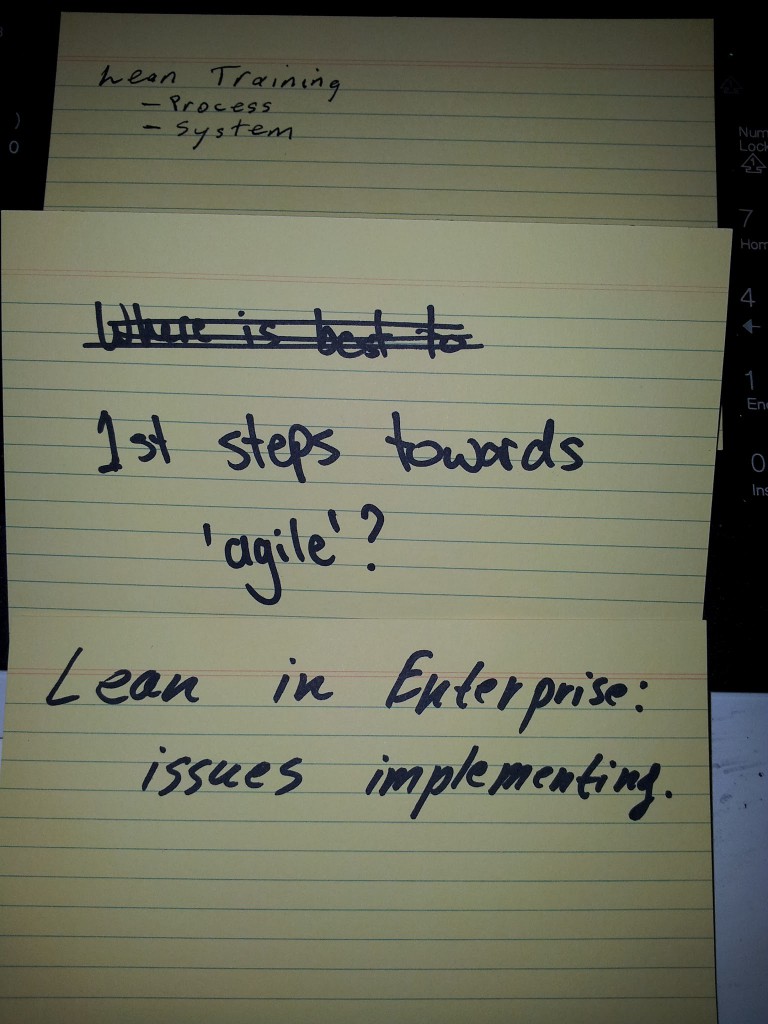 Lean Training
- Process
- System
Where is best to
1st steps towards
'agile'?
Lean in Enterprise:
issues implementing.
)
0
Num
Lock
1
7
Hom
4
1
En
0
Ins